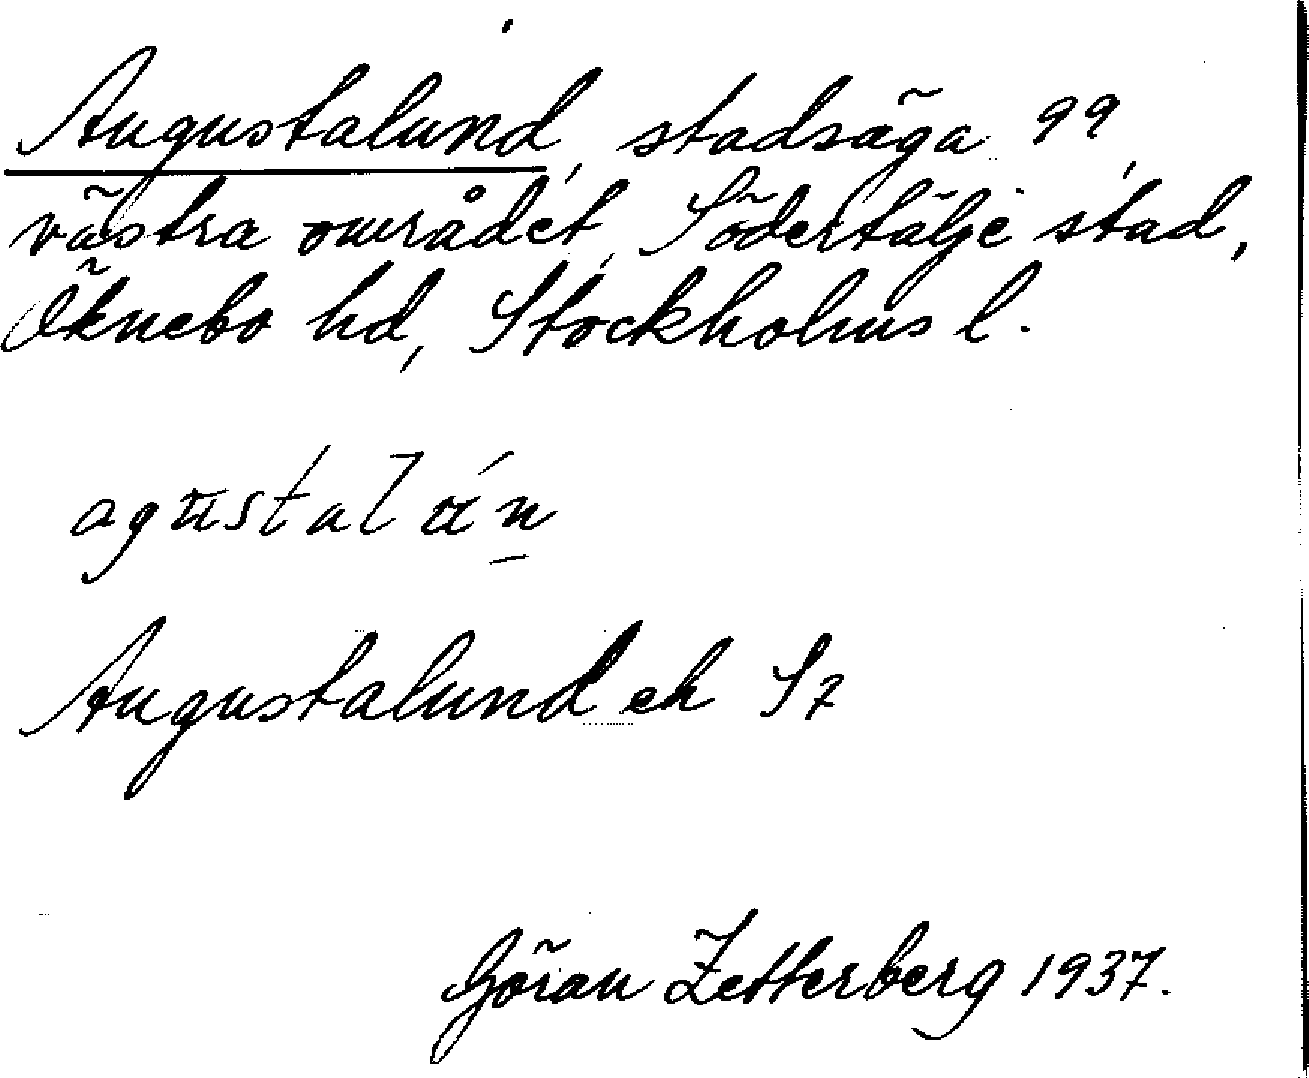 Augustalund, stadsäga 99,
västra området, Södertälje stad,
Öknebo hd, Stockholms l.
Augustalund ek Sz
Göran Zetterberg 1937.